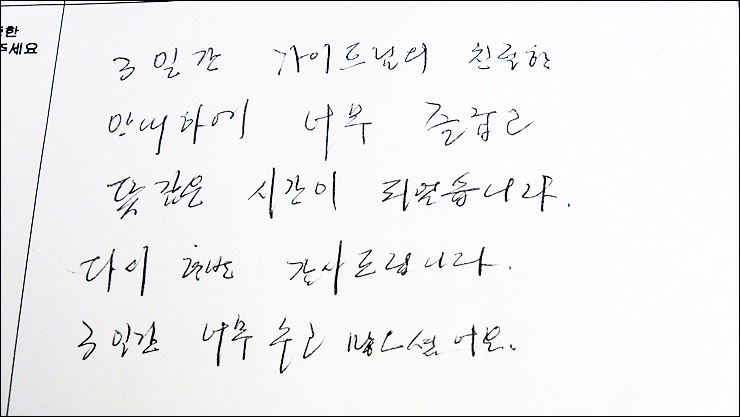 한
주세요
3일간 가이드님의 친절한
안내하에 너무 즐겁고
뜻깊은 시간이 되었습니다.
다이 한번 감사드립니다.
3일간 너무 수고 많으셨어요.